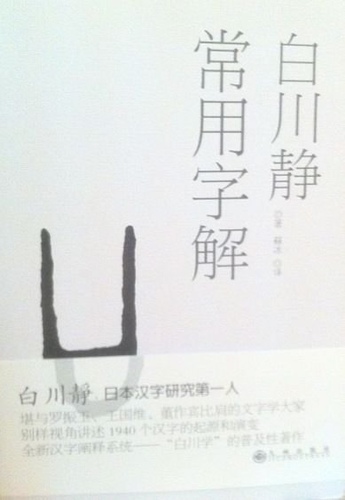 白川静
常用字解
著 苏冰 译
白川静，日本汉字研究第一人
堪与罗振玉、王国维、董作宾比肩的文字学大家
别样视角讲述1940个汉字的起源和演变
全新汉字阐释系统——“白川学”的普及性著作